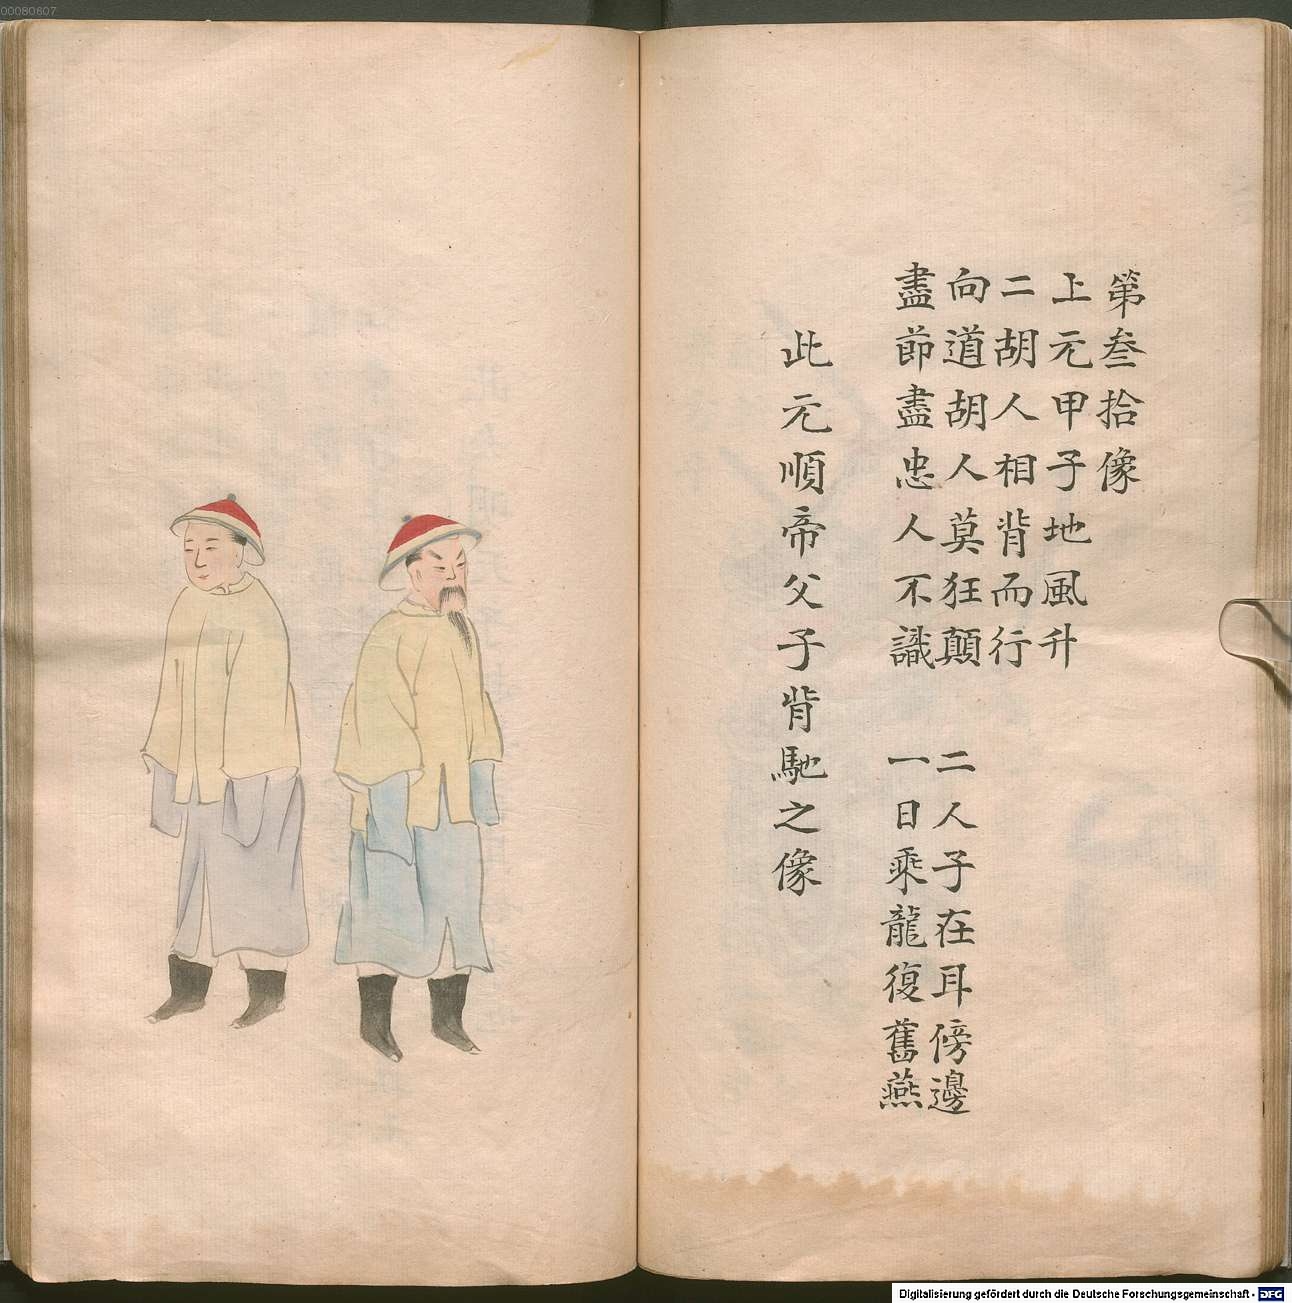 00080607
第叁拾像
上元甲子地風升
二胡人相背而行
向道胡人莫狂顛 二人子在耳傍邊
盡節盡忠人不識 一日乘龍復舊燕
此元順帝父子背馳之像
Digitalisierung gefördert durch die Deutsche Forschungsgemeinschaft - DFG